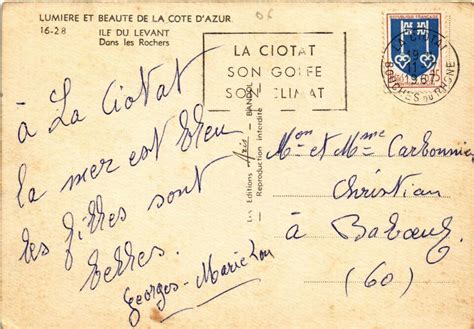 LUMIERE ET BEAUTE DE LA COTE D'AZUR
16-28 ILE DU LEVANT
Dans les Rochers
06
LA CIOTAT
SON GOLFE
SON CLIMAT
REPUBLIQUE FRANÇAISE
LA CIOTAT
19
11
1967
BOUCHES DU RHONE
à La Ciotat
la mer est bleu
les filles sont
belles.
Georges-Marie Lou
Les Editions Aris - BANDOL
Reproduction interdite
Mon et Mme Carbonnie
Christian
à Babœuf
(60)